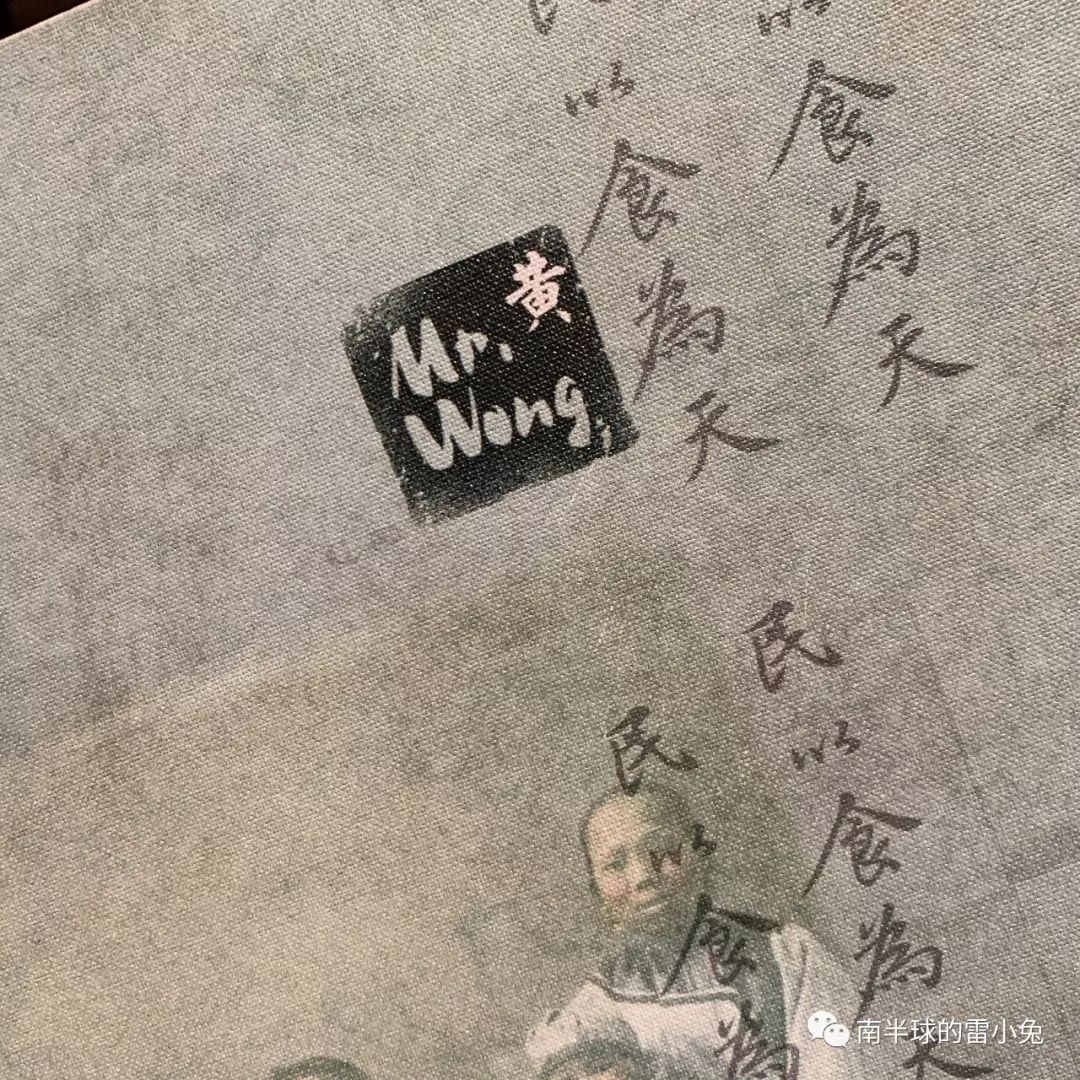 以食為天
民以食為天
黄
Mr.
Wong
民以食為天
民以食為
南半球的雷小兔